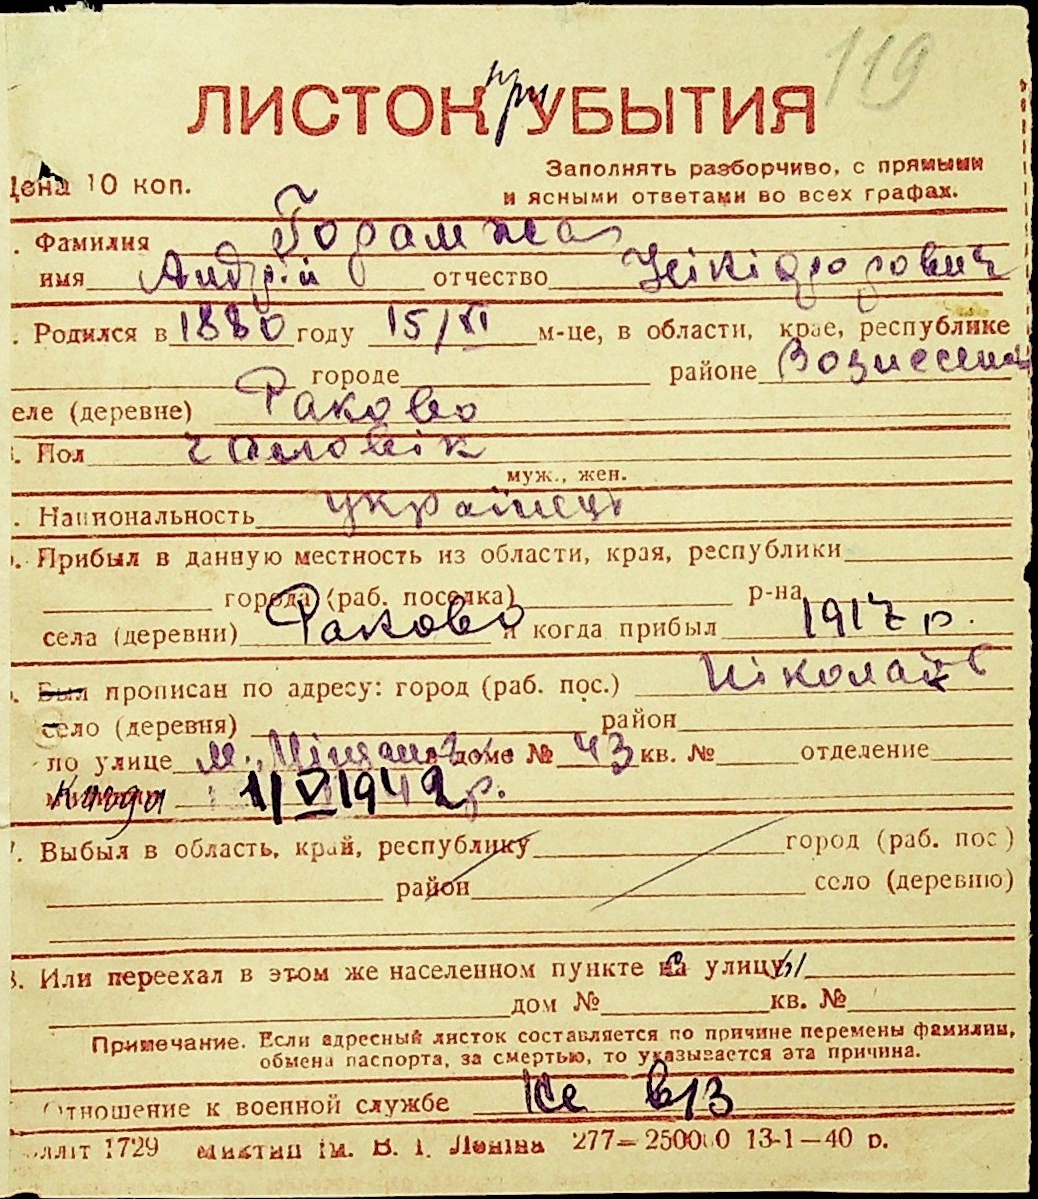 119
ЛИСТОК при УБЫТИЯ
Цена 10 коп.
Заполнять разборчиво, с прямыми
и ясными ответами во всех графах.
. Фамилия
имя Андрій отчество
. Родился в 1880 году 15/XI м-це, в области, крае, республике
городе районе Вознесенс
еле (деревне) Раково
. Пол чоловік
муж., жен.
. Национальность українець
. Прибыл в данную местность из области, края, республики
города (раб. поселка) р-на
села (деревни) Раково и когда прибыл 1917 р.
. Был прописан по адресу: город (раб. пос.) Ніколаїв
село (деревня) район
по улице М. в доме № 43 кв. № отделение
Когда 1/VI 1942 р.
7. Выбыл в область, край, республику город (раб. пос)
район село (деревню)
8. Или переехал в этом же населенном пункте с улицы
дом № кв. №
Примечание. Если адресный листок составляется по причине перемены фамилии,
обмена паспорта, за смертью, то указывается эта причина.
Отношение к военной службе Не в/з
літ 1729 ім. В. І. Леніна 277—250000 13-1—40 р.